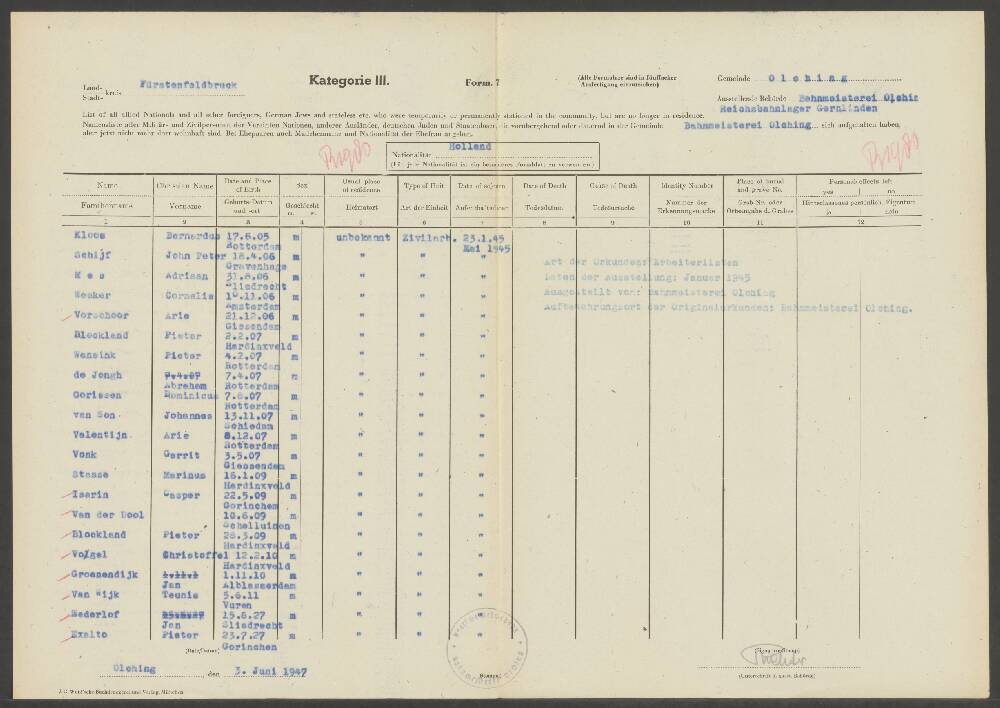 Land-
Stadt- kreis Fürstenfeldbruck
Kategorie III.
Form. 7
(Alle Formulare sind in fünffacher
Ausfertigung einzureichen)
Gemeinde Olching
Ausstellende Behörde Bahnmeisterei Olchin
Reichsbahnlager Gernlinden
List of all allied Nationals and all other foreigners, German Jews and stateless etc. who were temporarily or permanently stationed in the community, but are no longer in residence.
Namensliste aller Militär- und Zivilpersonen der Vereinten Nationen, anderer Ausländer, deutschen Juden und Staatenlosen, die vorübergehend oder dauernd in der Gemeinde Bahnmeisterei Olching sich aufgehalten haben,
aber jetzt nicht mehr dort wohnhaft sind. Bei Ehepaaren auch Mädchenname und Nationalität der Ehefrau angeben.
Nationalität Holland
(Für jede Nationalität ist ein besonderes Formblatt zu verwenden)
Name Christian Name Date and Place of Birth Sex Usual place of residence Type of Unit Date of sojourn Date of Death Cause of Death Identity Number Place of burial and grave No. Personal effects left yes no
Familienname Vorname Geburts-Datum und -ort Geschlecht m. w. Heimatort Art der Einheit Aufenthaltsdauer Todesdatum Todesursache Nummer der Erkennungsmarke Grab-Nr. oder Ortsangabe d. Grabes Hinterlassenes persönlich. Eigentum ja nein
1 2 3 4 5 6 7 8 9 10 11 12
Kloos Bernardus 17.6.05 m unbekannt Zivilarb. 23.1.45
Rotterdam Mai 1945
Schijf John Peter 18.4.06 m " " "
Gravenhage
Mes Adriaan 31.8.06 m " " "
Sliedrecht
Wesker Cornelis 10.11.06 m " " "
Amsterdam
Vorschoor Arie 21.12.06 m " " "
Giessendam
Blockland Pieter 2.2.07 m " " "
Hardinxveld
Wensink Pieter 4.2.07 m " " "
Rotterdam
de Jongh 7.4.07 7.4.07 m " " "
Abraham Rotterdam
Gorissen Dominicus 7.8.07 m " " "
Rotterdam
van Son Johannes 13.11.07 m " " "
Schiedam
Valentijn Arie 8.12.07 m " " "
Rotterdam
Vonk Gerrit 3.5.07 m " " "
Giessendam
Stasse Marinus 16.1.09 m " " "
Hardinxveld
Isarin Casper 22.5.09 m " " "
Gorinchem
Van der Dool 10.6.09 m " " "
Schelluinen
Blockland Pieter 28.3.09 m " " "
Hardinxveld
Volgel Christoffel 12.2.10 m " " "
Hardinxveld
Groenendijk 1.11.10 m " " "
Jan Alblasserdam
Van Wijk Teunis 5.6.11 m " " "
Vuren
Nederlof 15.6.27 m " " "
Jan Sliedrecht
Exalto Pieter 23.7.27 m " " "
Gorinchem
Art der Urkunden: Arbeiterlisten
Daten der Ausstellung: Januar 1945
Ausgestellt von: Bahnmeisterei Olching
Aufbewahrungsort der Originalurkunden: Bahnmeisterei Olching.
(Date/Datum)
Olching, den 3. Juni 1947
Stempel
(Unterschrift d. ausst. Behörde)
J. G. Weiß'sche Buchdruckerei und Verlag, München